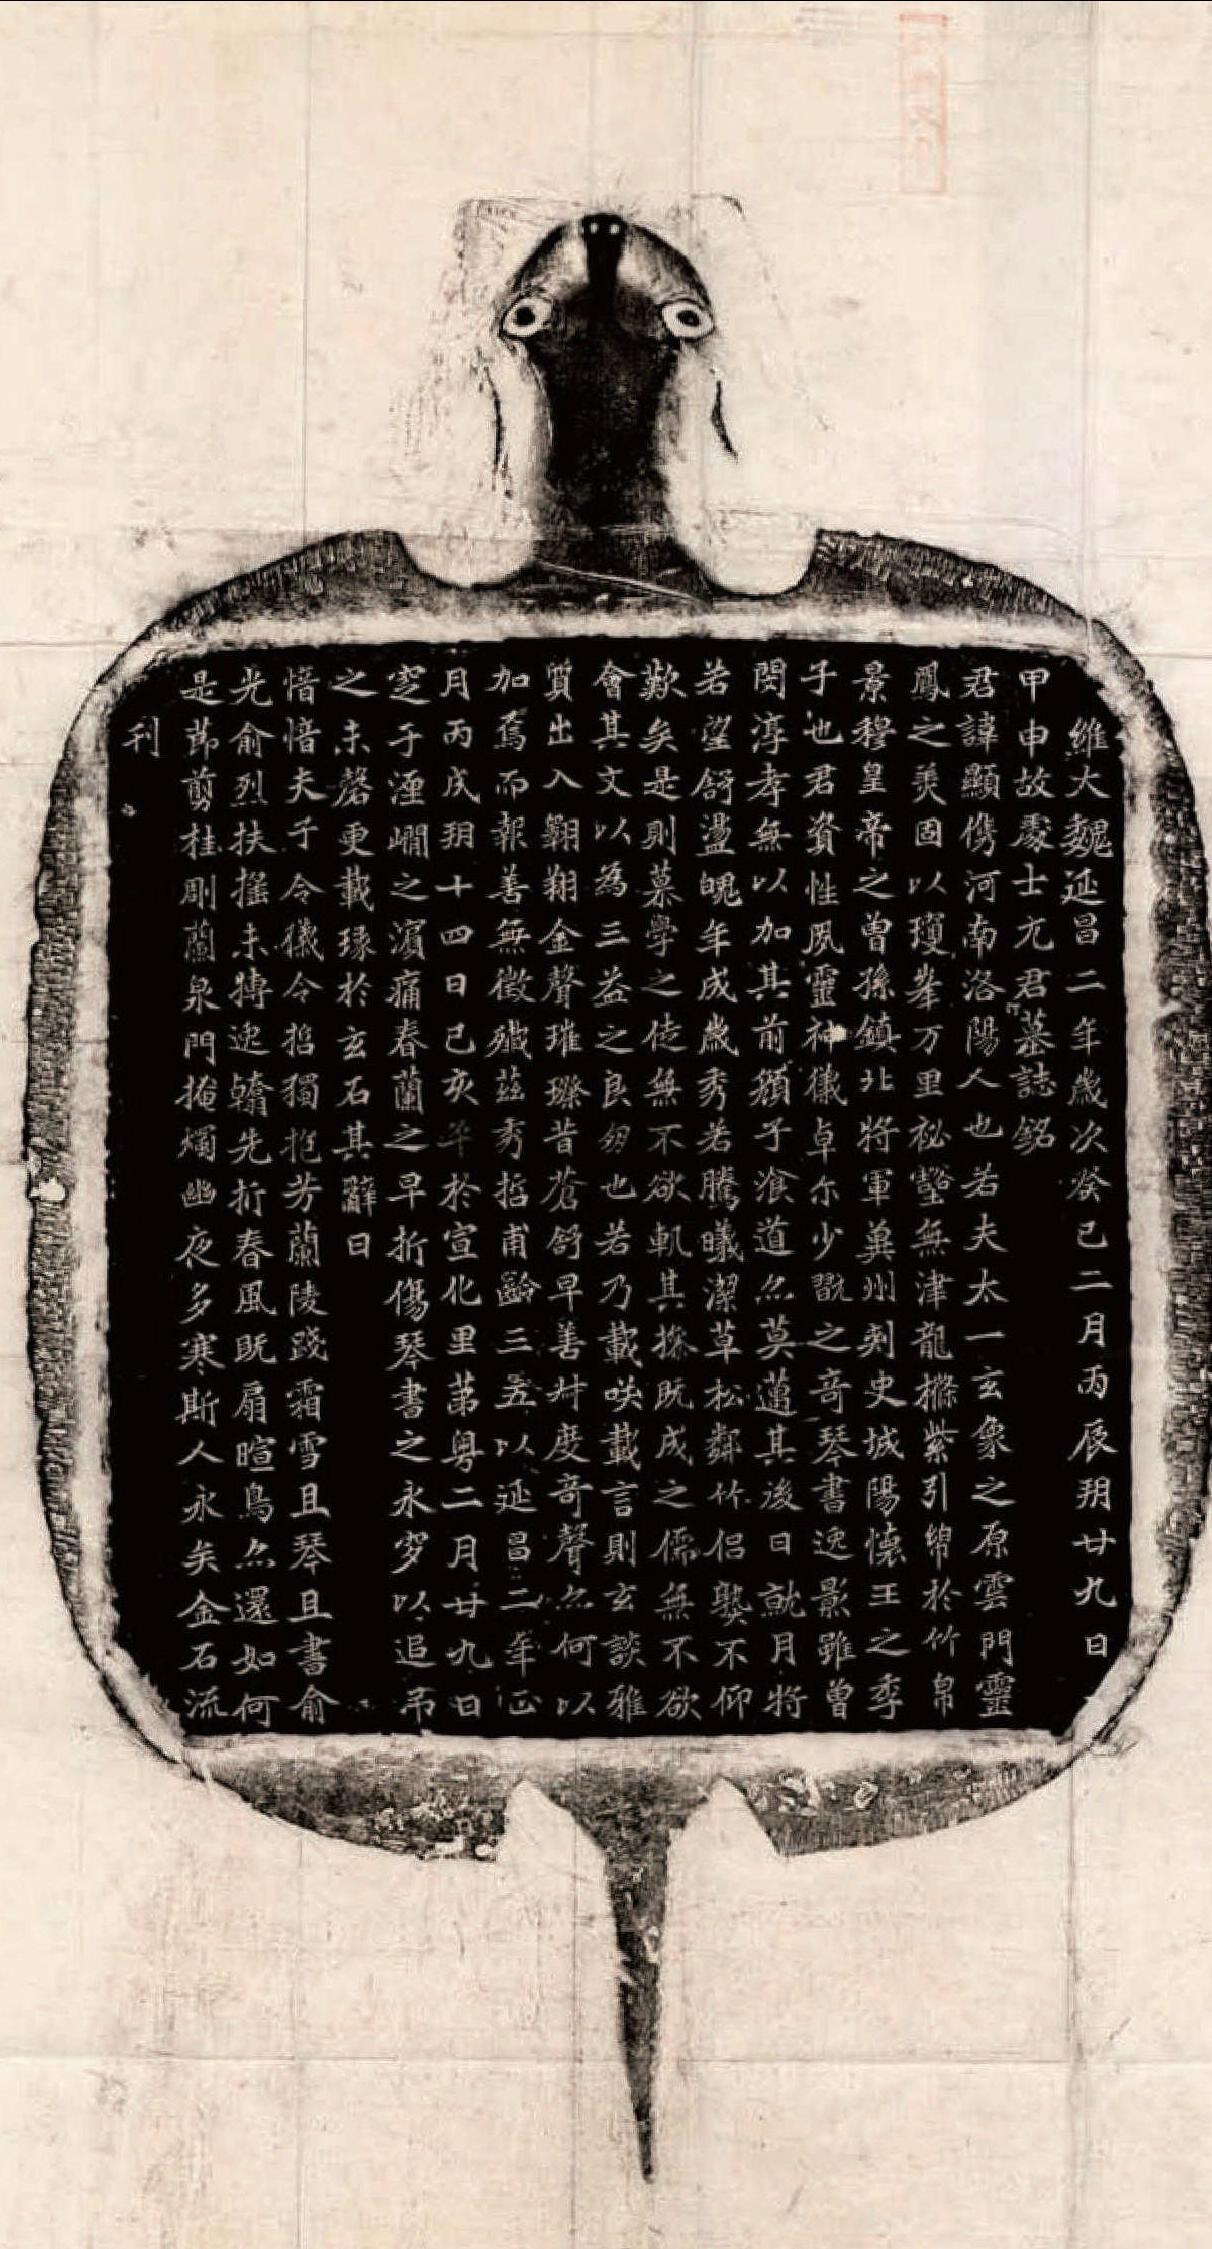 維大魏延昌二年歲次癸巳二月丙辰朔廿九日
甲申故處士元君墓誌銘
君諱顯儁河南洛陽人也若夫太一玄象之原雲門靈
鳳之美固以瓊峯万里祕壑無津龍檦紫引綿於竹帛
景穆皇帝之曾孫鎮北將軍冀州刺史城陽懷王之季
子也君資性夙靈神儀卓尒少翫之奇琴書逸影雖曾
閔淳孝無以加其前顏子飡道亦莫邁其後日就月將
若望舒盪魄年成歲秀若騰曦潔草松鄰竹侶熟不仰
歎矣是則慕學之徒無不欲軌其操既成之儒無不欲
會其文以為三益之良朋也若乃載笑載言則玄談雅
質出入翱翔金聲璀璨昔蒼舒早善叶度奇聲亦何以
加焉而報善無徵殲茲秀哲甫齡三五以延昌二年正
月丙戌朔十四日己亥卒於宣化里第粵二月廿九日
窆于瀍澗之濱痛春蘭之早折傷琴書之永穸以追弔
之未罄更載琭於玄石其辭曰
愔愔夫子令儀令哲獨抱芳蘭陵踐霜雪且琴且書俞
光俞烈扶搖未摶逸翰先折春風既扇暄鳥亦還如何
是節剪桂彫蘭泉門掩燭幽夜多寒斯人永矣金石流
刊